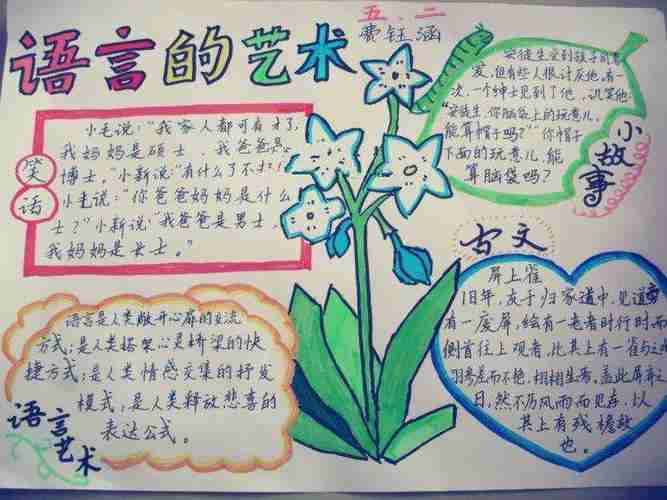 语言的艺术
五、二
费钰涵
笑话
小毛说:“我家人都可有才了,
我妈妈是硕士,我爸爸是
博士,”小新说:“有什么了不
小毛说:“你爸爸妈妈是什么
士?”小新说:“我爸爸是男士,
我妈妈是女士。”
小故事
安徒生受到孩子
发,但有些人很讨厌他,有一
次,一个绅士见到了他,讥笑他:
“安徒生,你脑袋上的玩意儿,
能算帽子吗?”“你帽子
下面的玩意儿,能
算脑袋吗?
语言艺术
语言是人类敞开心扉的交流
方式;是人类搭架心灵桥梁的快
捷方式;是人类情感交集的抒发
模式,是人类释放悲喜的
表达公式。
古文
屏上雀
旧年,友于归家道中,见道旁
有一废屏,绘有一老者时行时
侧首往上观者,比其上有一雀与之
羽翼差而不艳,栩栩生焉。盖此屏弃之
日,然不乃风雨而见存,以
其上有残檐故
也。